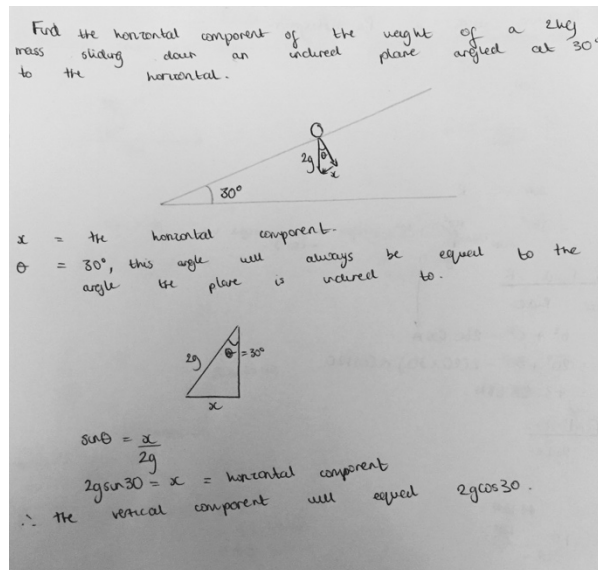 Find the horizontal component of the weight of a 2kg
mass sliding down an inclined plane angled at 30°
to the horizontal.
2g θ
x
30°
x = the horizontal component.
θ = 30°, this angle will always be equal to the
angle the plane is inclined to.
2g θ = 30°
x
sinθ = x/2g
2gsin30 = x = horizontal component
∴ the vertical component will equal 2gcos30.